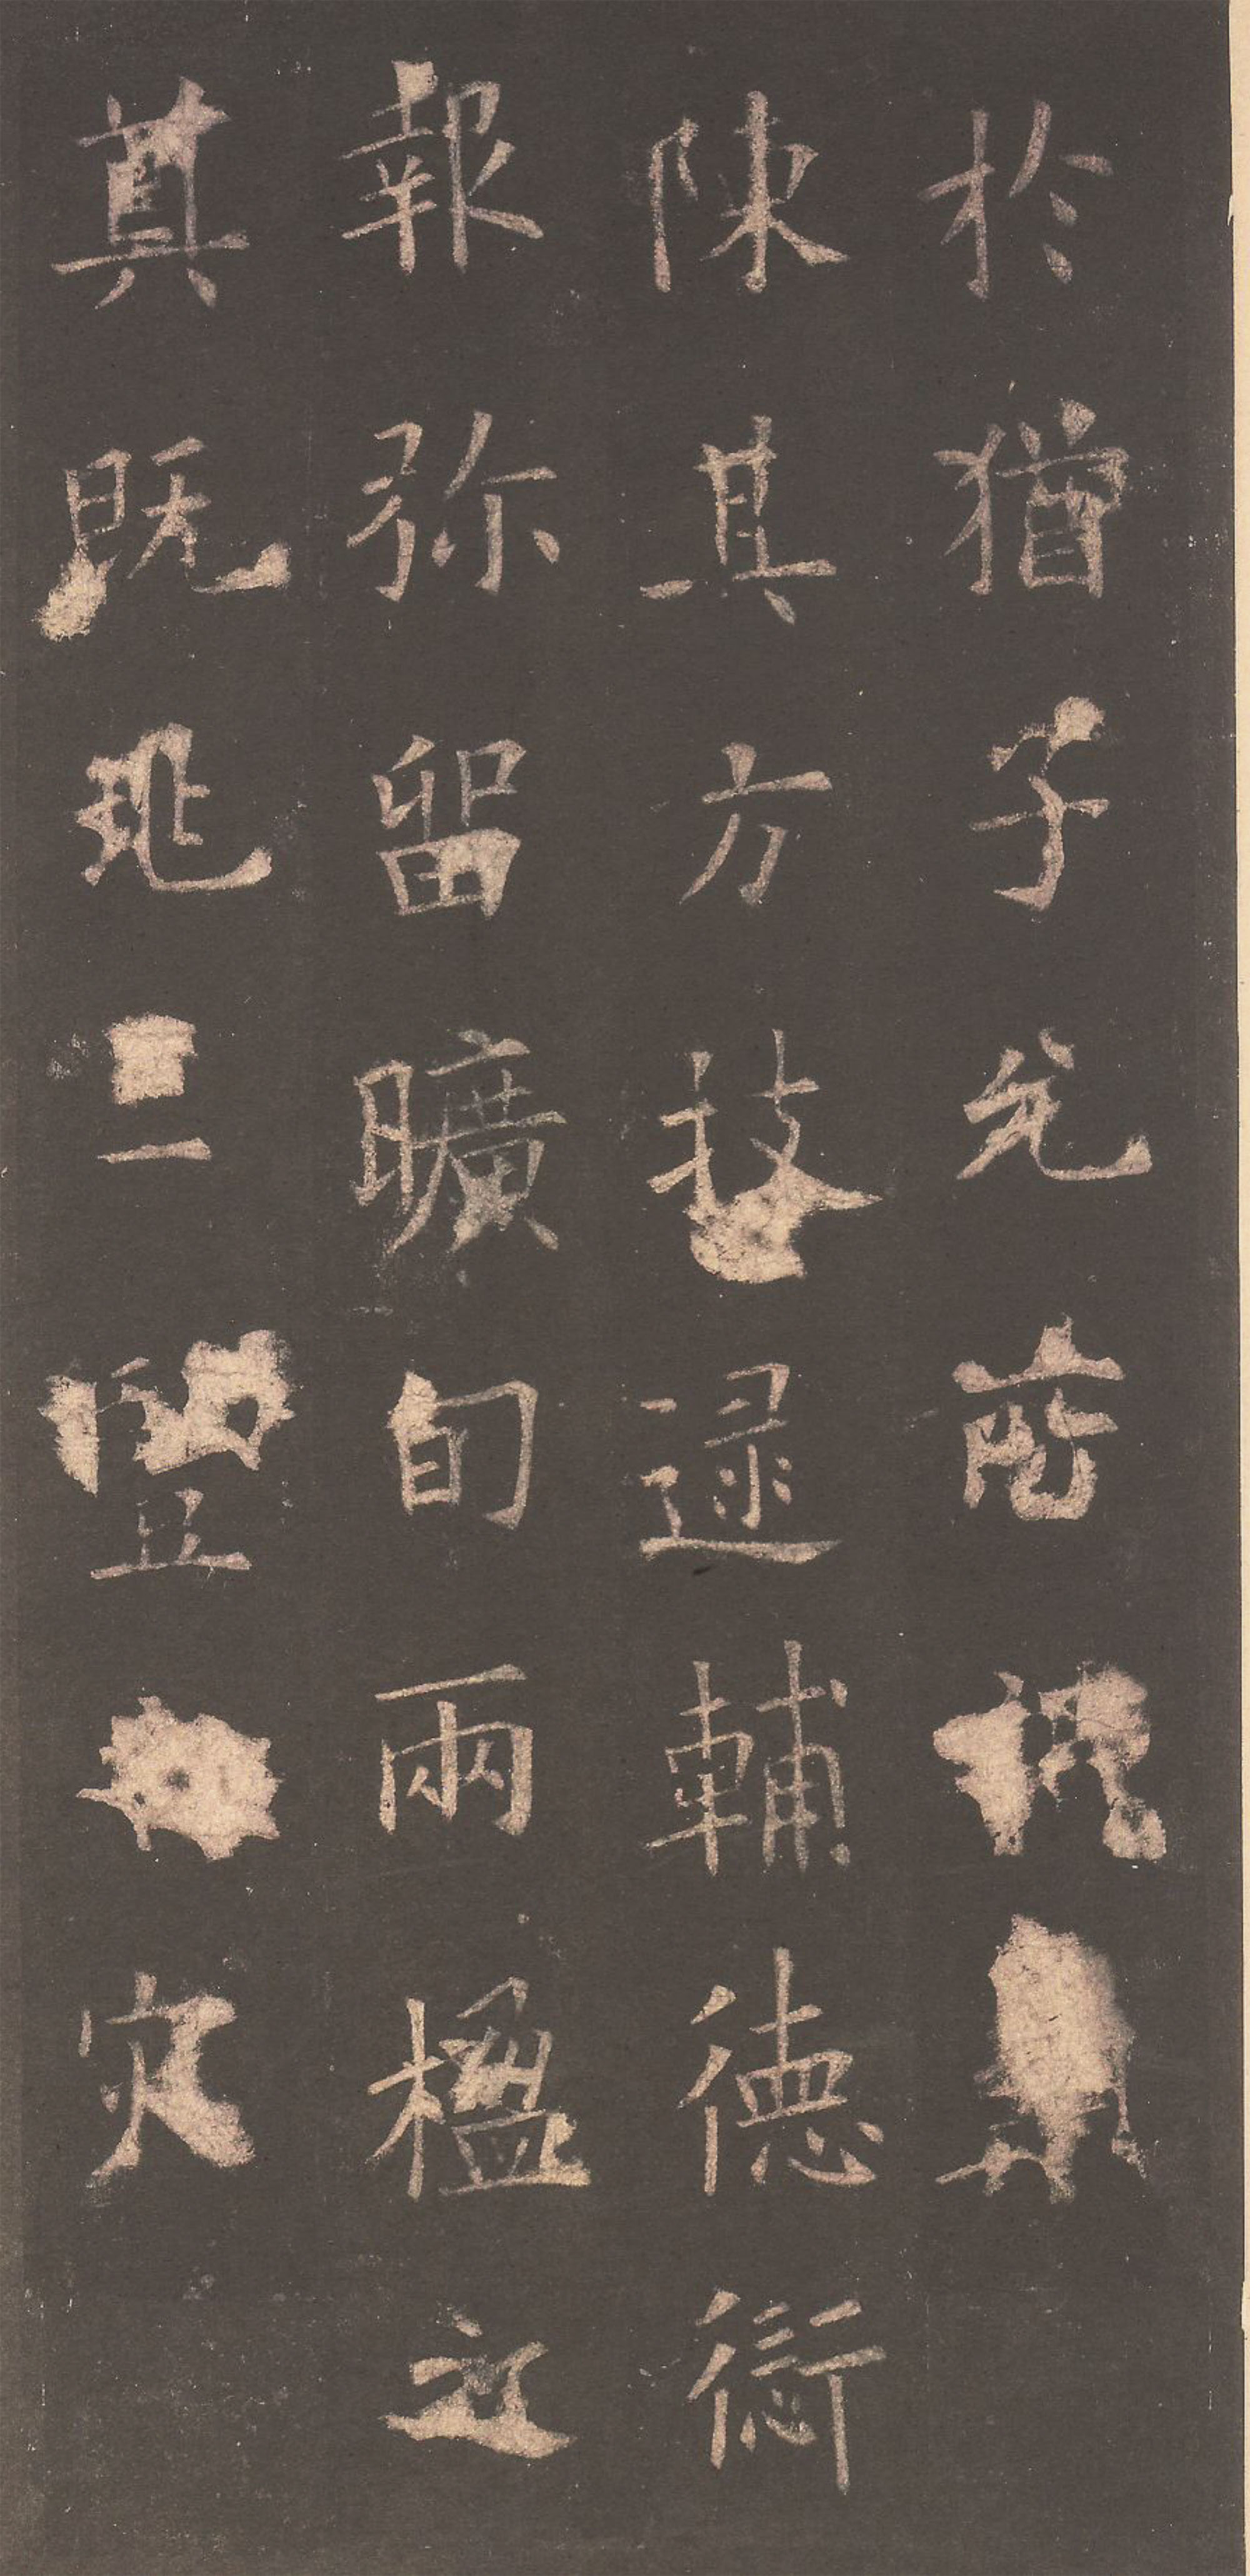 於猶子允齒
陳其方技逯輔德衍
報弥留曠旬兩楹之
真既兆二豎灾